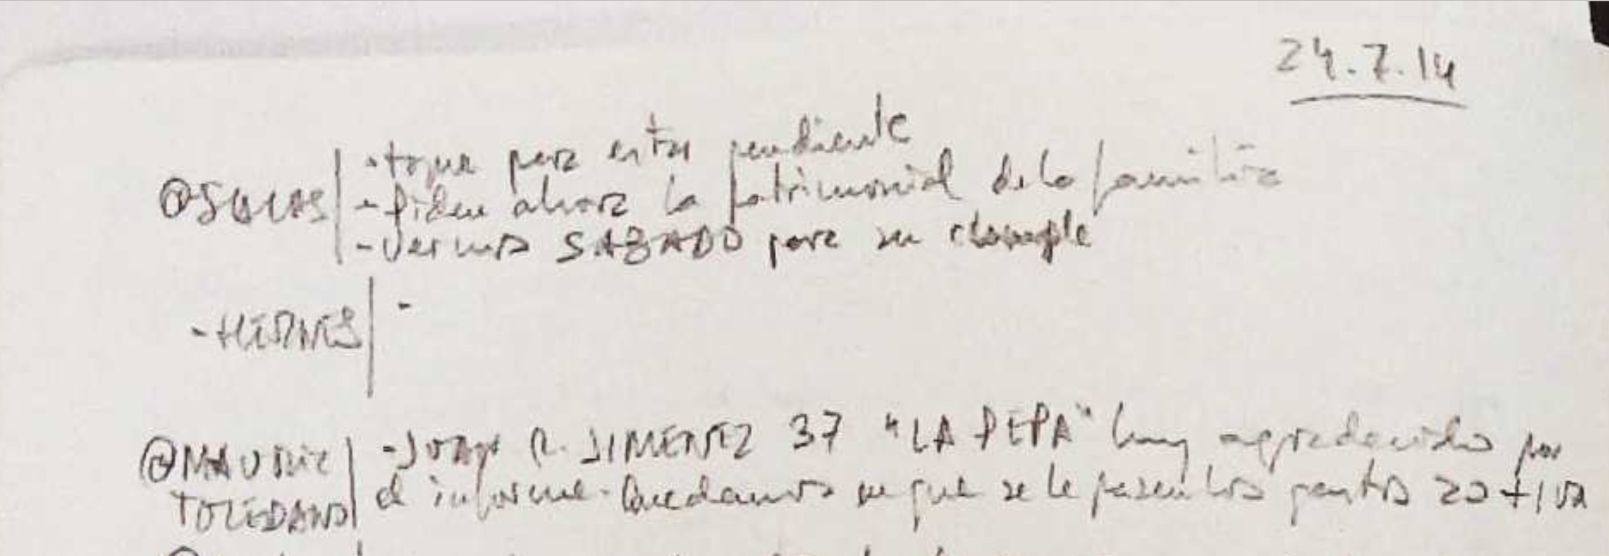 24.7.14
- toque para estar pendiente
@SALAS - Piden ahora la patrimonial de la familia
- Vernos SABADO para su
- HIDNES -
@MAURIC - JUAN R. JIMENEZ 37 "LA PEPA" muy agradecido por
TOLEDANO el informe. Quedamos en que se le pasen los gastos 20 + IVA